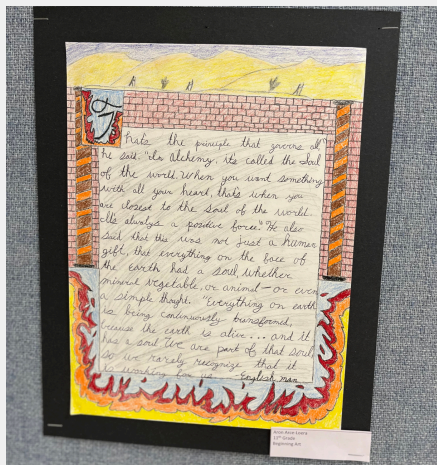 Thats the principle that governs all"
he said. "In alchemy, it's called the Soul
of the world. When you want something
with all your heart, that's when you
are closest to the soul of the world.
It's always a positive force." He also
said that this was not just a human
gift, that everything on the face of
the earth had a soul, whether
mineral, vegetable, or animal - or even
a simple thought. "Everything on earth
is being continuously transformed,
because the earth is alive... and it
has a soul. We are part of that soul,
so we rarely recognize that it
is working for us. -English man
12th Grade
Beginning Art